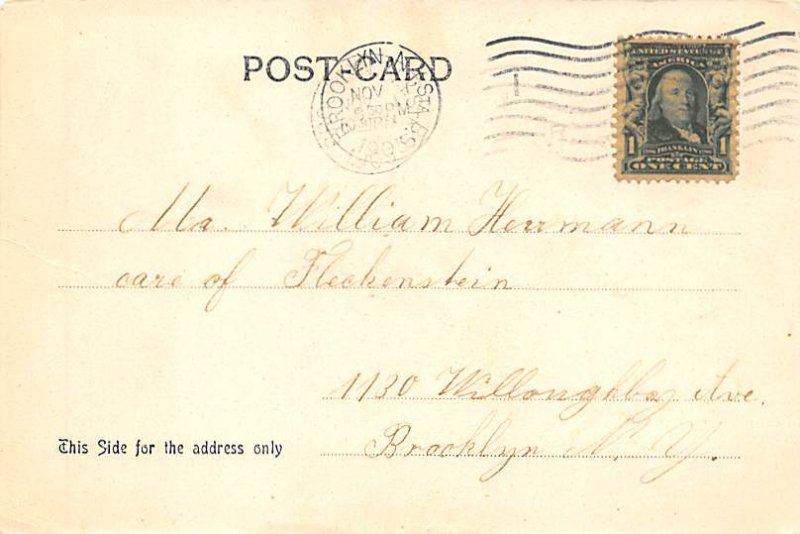 POST CARD
BROOKLYN, N.Y.
NOV
PM
190
UNITED STATES OF
AMERICA
1 FRANKLIN 1
POSTAGE
ONE CENT
Mr. William Herrmann
care of Fleckenstein
1130 Willoughby Ave.
Brooklyn N. Y.
This Side for the address only